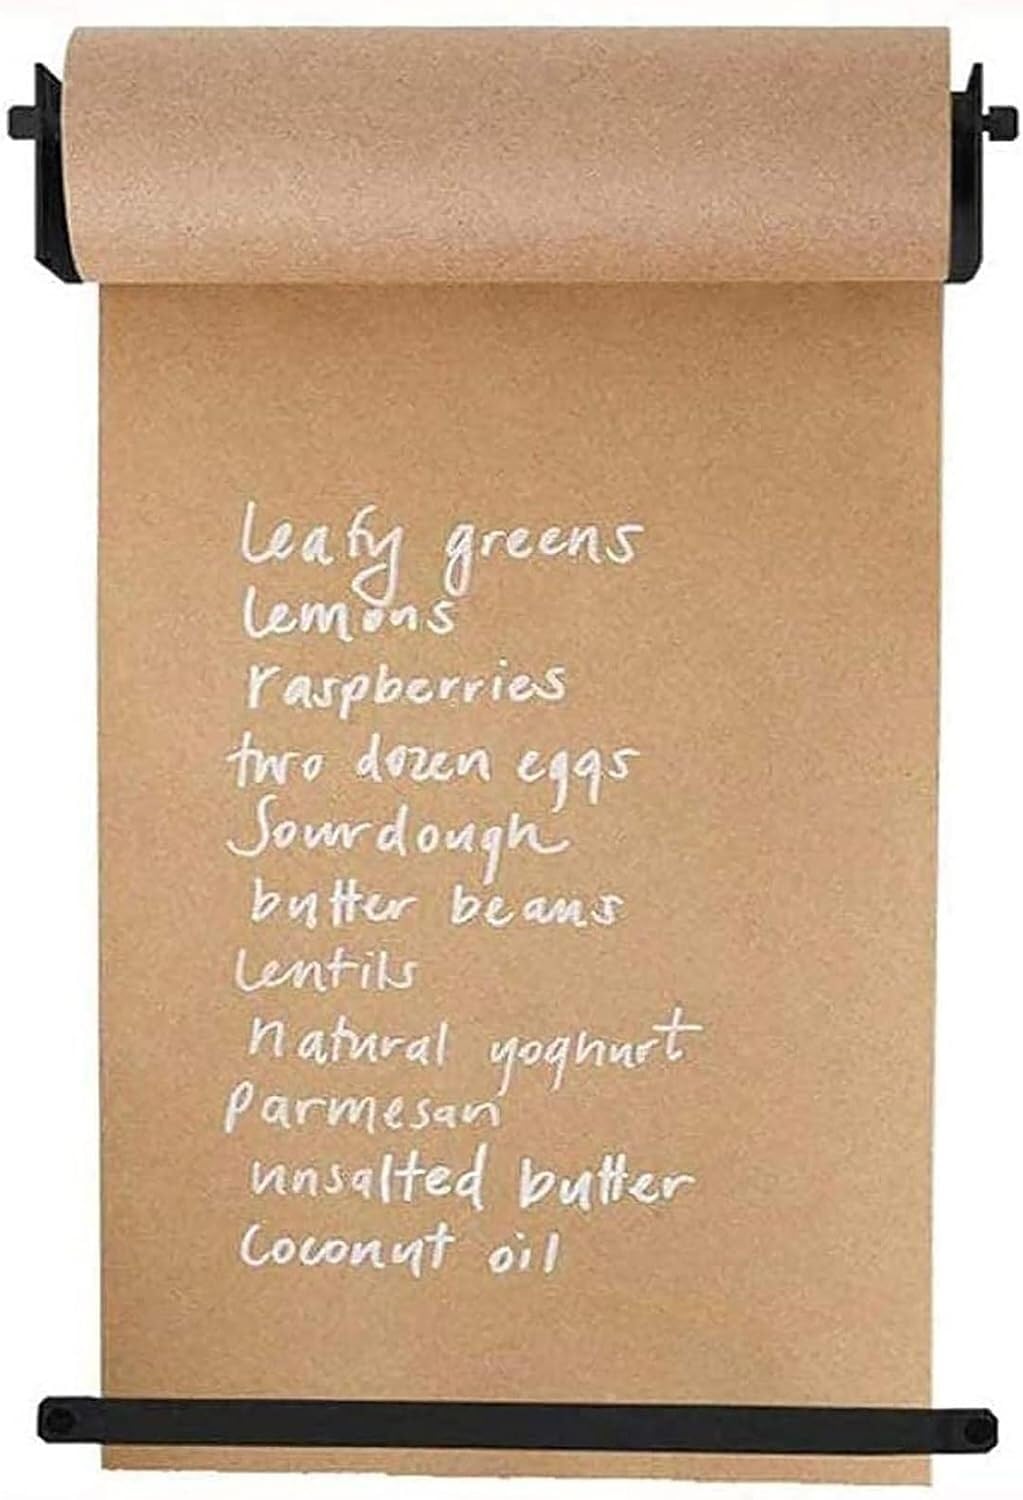 Leafy greens
lemons
raspberries
two dozen eggs
Sourdough
butter beans
Lentils
Natural yoghurt
Parmesan
unsalted butter
Coconut oil